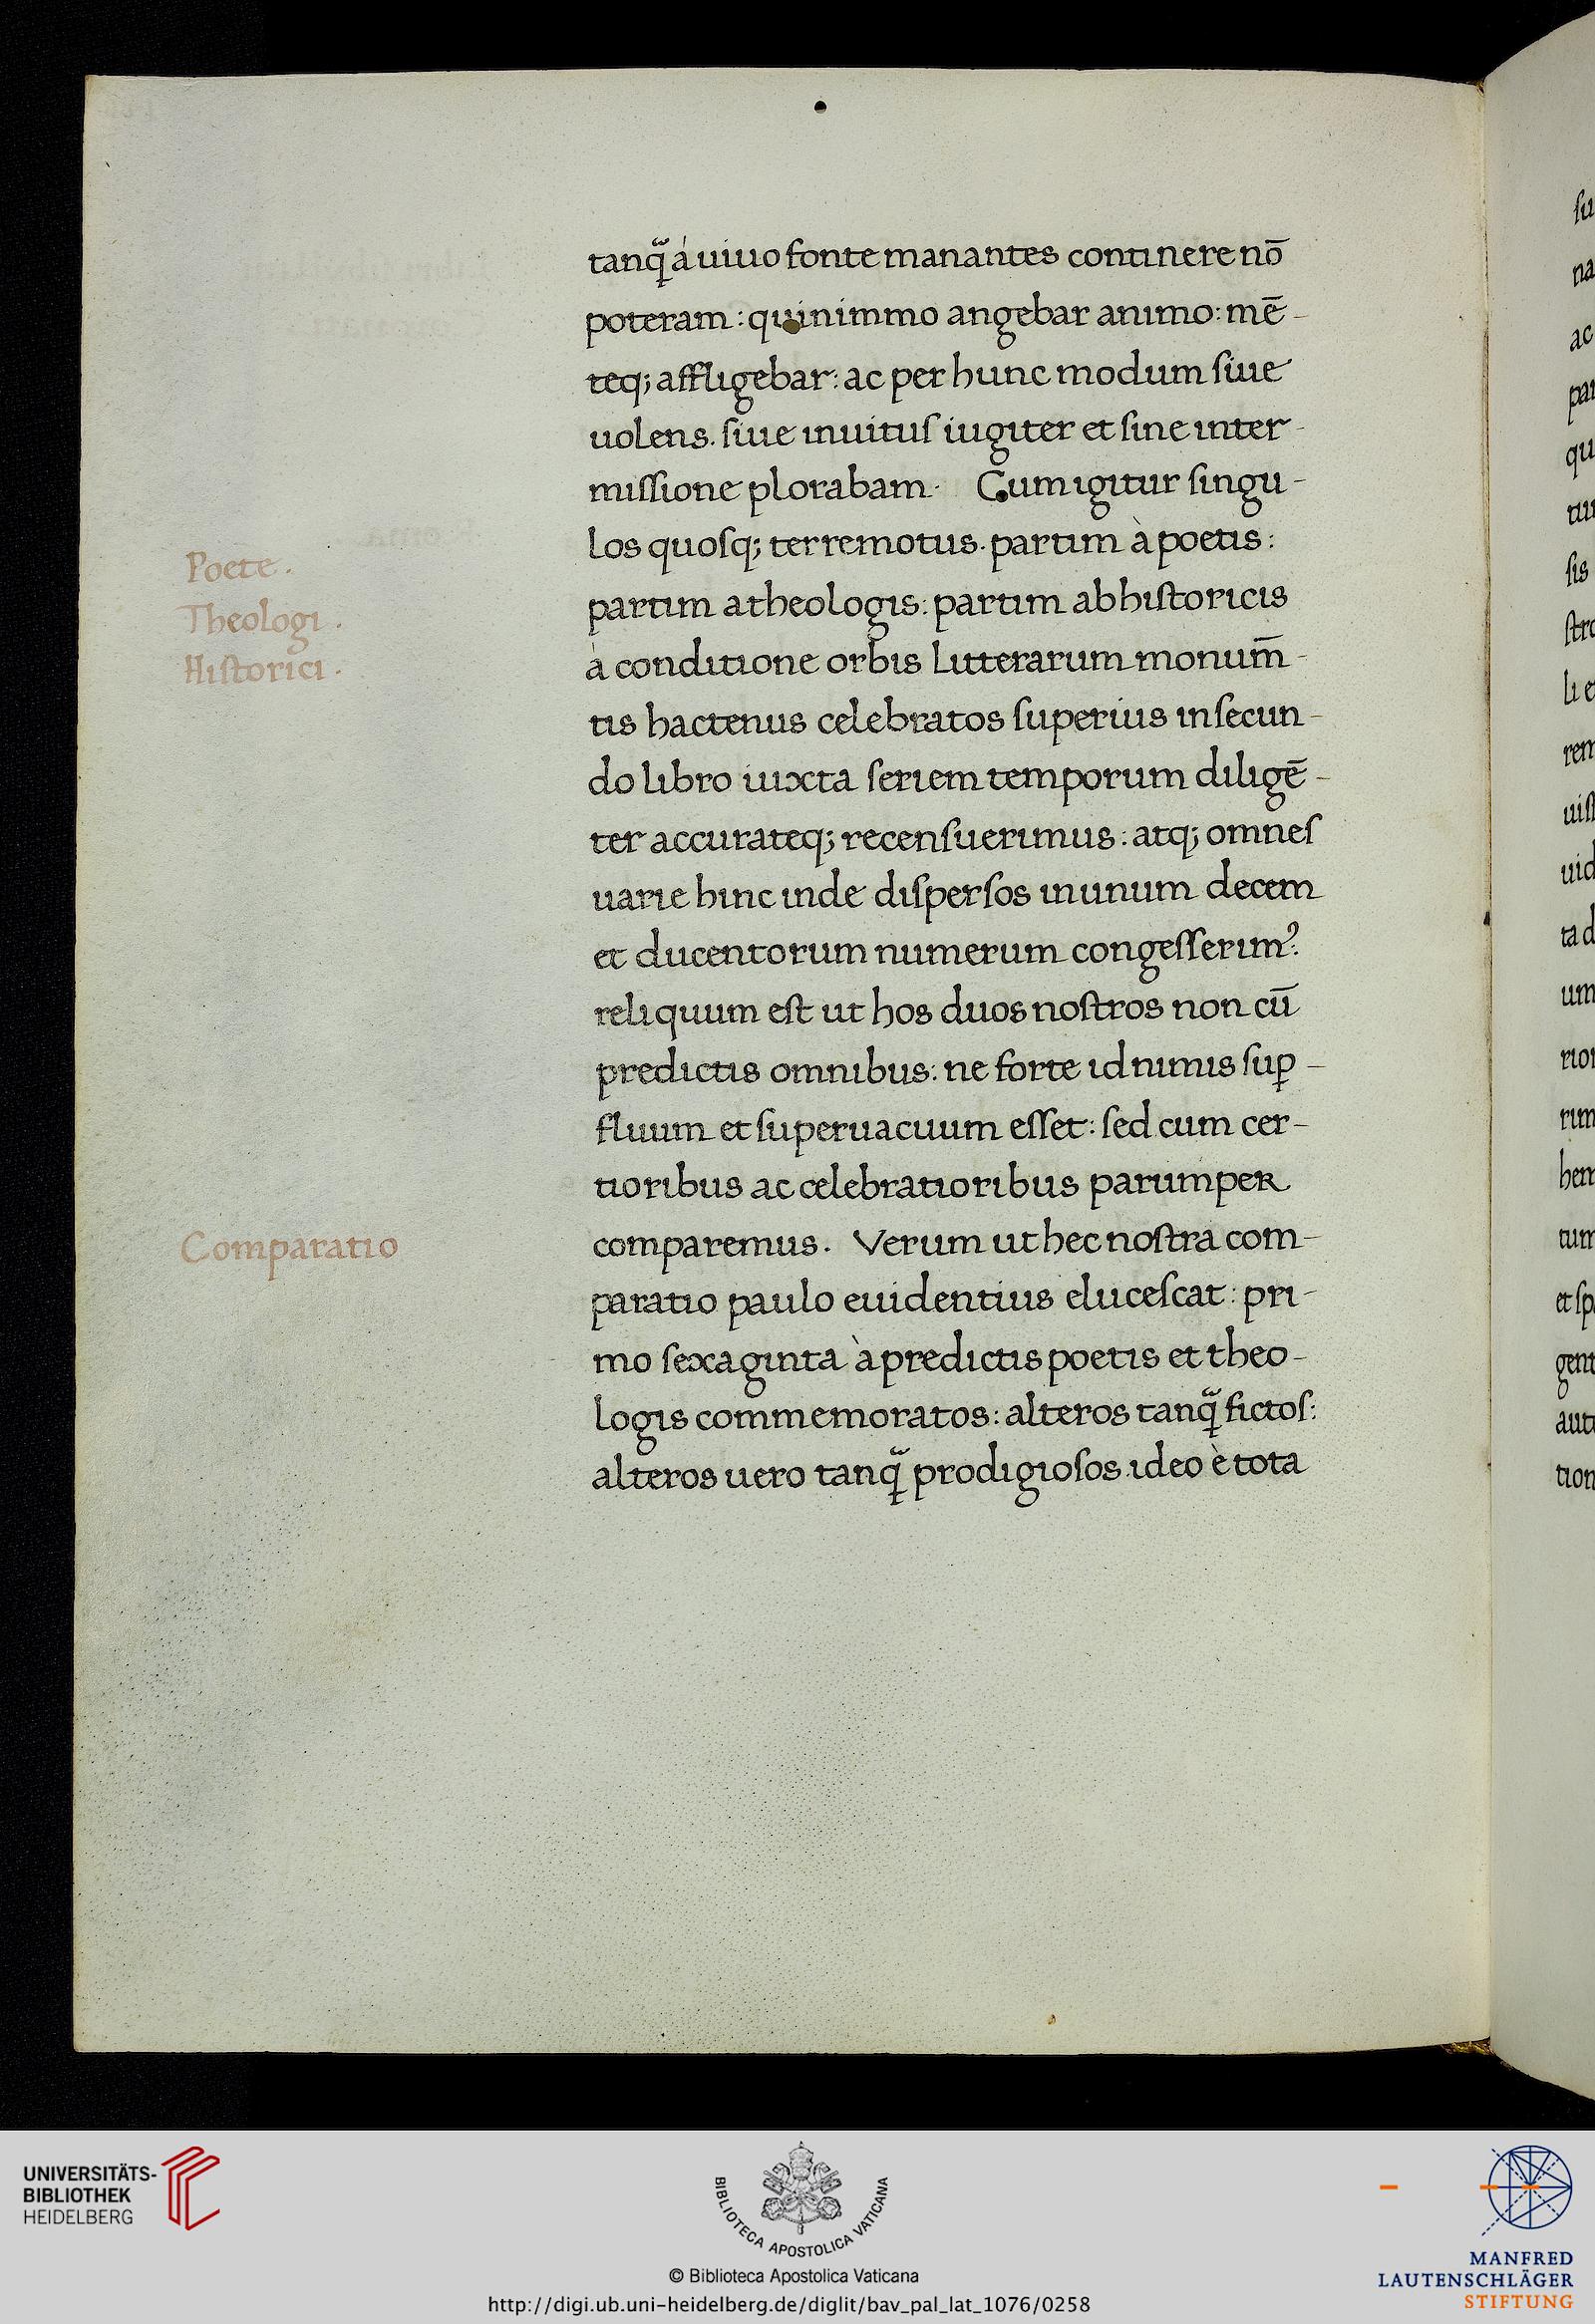 tanq̃ á uiuo fonte manantes continere nō
poteram : quinimmo angebar animo : mē-
teq; affligebar : ac per hunc modum siue
uolens. siue inuitus iugiter et sine inter-
missione plorabam. Cum igitur singu-
los quosq; terremotus. partim à poetis :
Poete .
partim a theologis : partim ab historicis
Theologi .
à conditione orbis litterarum monum̄-
Historici .
tis hactenus celebratos superius in secun-
do libro iuxta seriem temporum diligē-
ter accurateq; recensuerimus : atq; omnes
uarie hinc inde dispersos in unum decem
et ducentorum numerum congesserimꝰ :
reliquum est ut hos duos nostros non cū
predictis omnibus : ne forte id nimis suꝑ-
fluum et superuacuum esset : sed cum cer-
tioribus ac celebratioribus parumper
Comparatio
comparemus . Verum ut hec nostra com-
paratio paulo euidentius elucescat : pri-
mo sexaginta à predictis poetis et theo-
logis commemoratos : alteros tanq̃ fictos :
alteros uero tanq̃ prodigiosos ideo è tota
su
na
ac
par
qu
sis
stro
li e
rem
uist
uid
ta d
um
rior
rim
hem
tum
et sp
gent
aut
tion
UNIVERSITÄTS-
BIBLIOTHEK
HEIDELBERG
BIBLIOTECA APOSTOLICA VATICANA
© Biblioteca Apostolica Vaticana
http://digi.ub.uni-heidelberg.de/diglit/bav_pal_lat_1076/0258
MANFRED
LAUTENSCHLÄGER
STIFTUNG